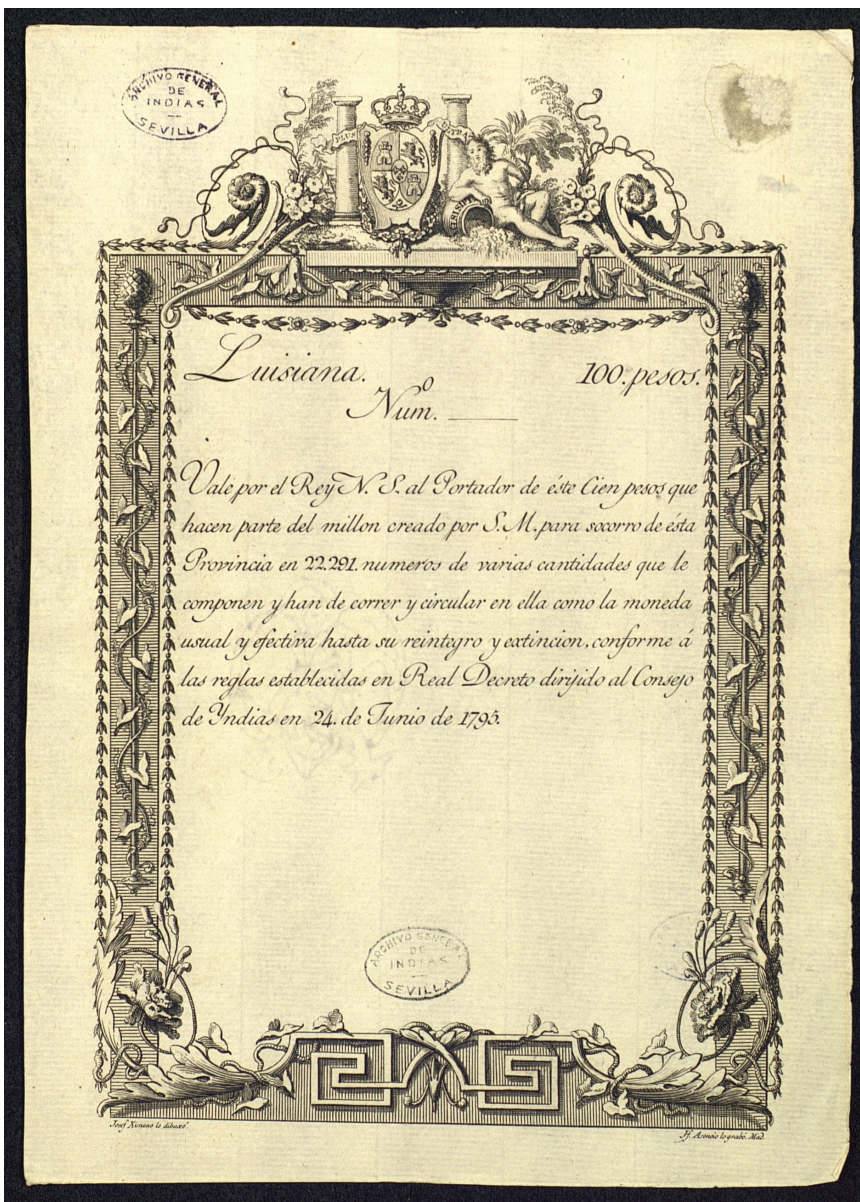 ARCHIVO GENERAL
DE
INDIAS
SEVILLA
PLUS
Luisiana. 100. pesos.
Num.º
Vale por el Rey N. S. al Portador de éste Cien pesos que
hacen parte del millon creado por S. M. para socorro de ésta
Provincia en 22.291. numeros de varias cantidades que le
componen y han de correr y circular en ella como la moneda
usual y efectiva hasta su reintegro y extincion, conforme á
las reglas establecidas en Real Decreto dirijido al Consejo
de Yndias en 24. de Junio de 1795.
ARCHIVO GENERAL
DE
INDIAS
SEVILLA
Josef Ximeno lo dibuxó.
Asensio lo grabó. Mad.